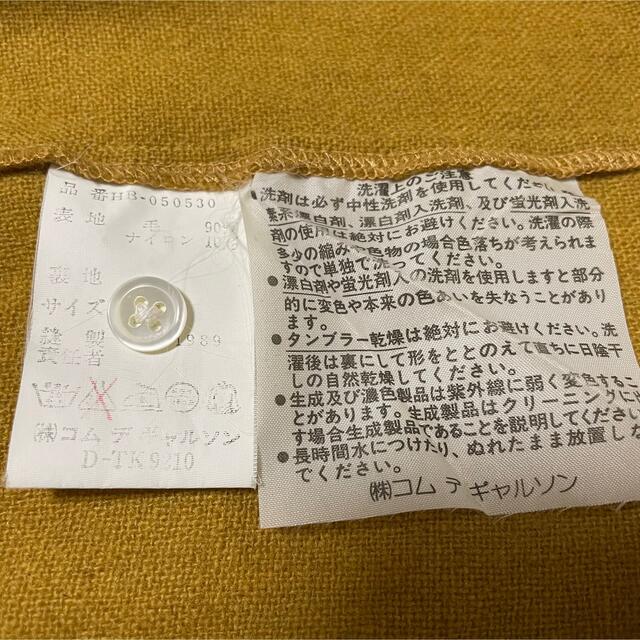 品番HB-050530
表地 毛 90%
ナイロン 10%
裏地
サイズ
縫製 1989
責任者
㈱コム デ ギャルソン
D-TK9210
洗濯上のご注意
●洗剤は必ず中性洗剤を使用してください。
素系漂白剤、漂白剤入洗剤、及び蛍光剤入洗
剤の使用は絶対にお避けください。洗濯の際
多少の縮みや色物の場合色落ちが考えられま
すので単独で洗ってください。
●漂白剤や蛍光剤入の洗剤を使用しますと部分
的に変色や本来の色あいを失なうことがあり
ます。
●タンブラー乾燥は絶対にお避けください。洗
濯後は裏にして形をととのえて直ちに日陰干
しの自然乾燥してください。
●生成及び濃色製品は紫外線に弱く変色するこ
とがあります。生成製品はクリーニングに
す場合生成製品であることを説明してください
●長時間水につけたり、ぬれたまま放置し
でください。
㈱コム デ ギャルソン